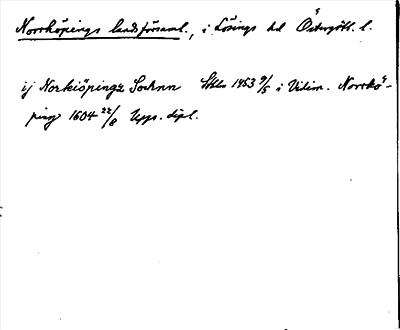 Norrköpings landsförsaml., i Lösings hd Östergötl. l.
ij Norkiöpingx Sochnn Sthlm 1453 9/5 i Vidim. Norrkö-
ping 1604 22/8 Upps. dipl.